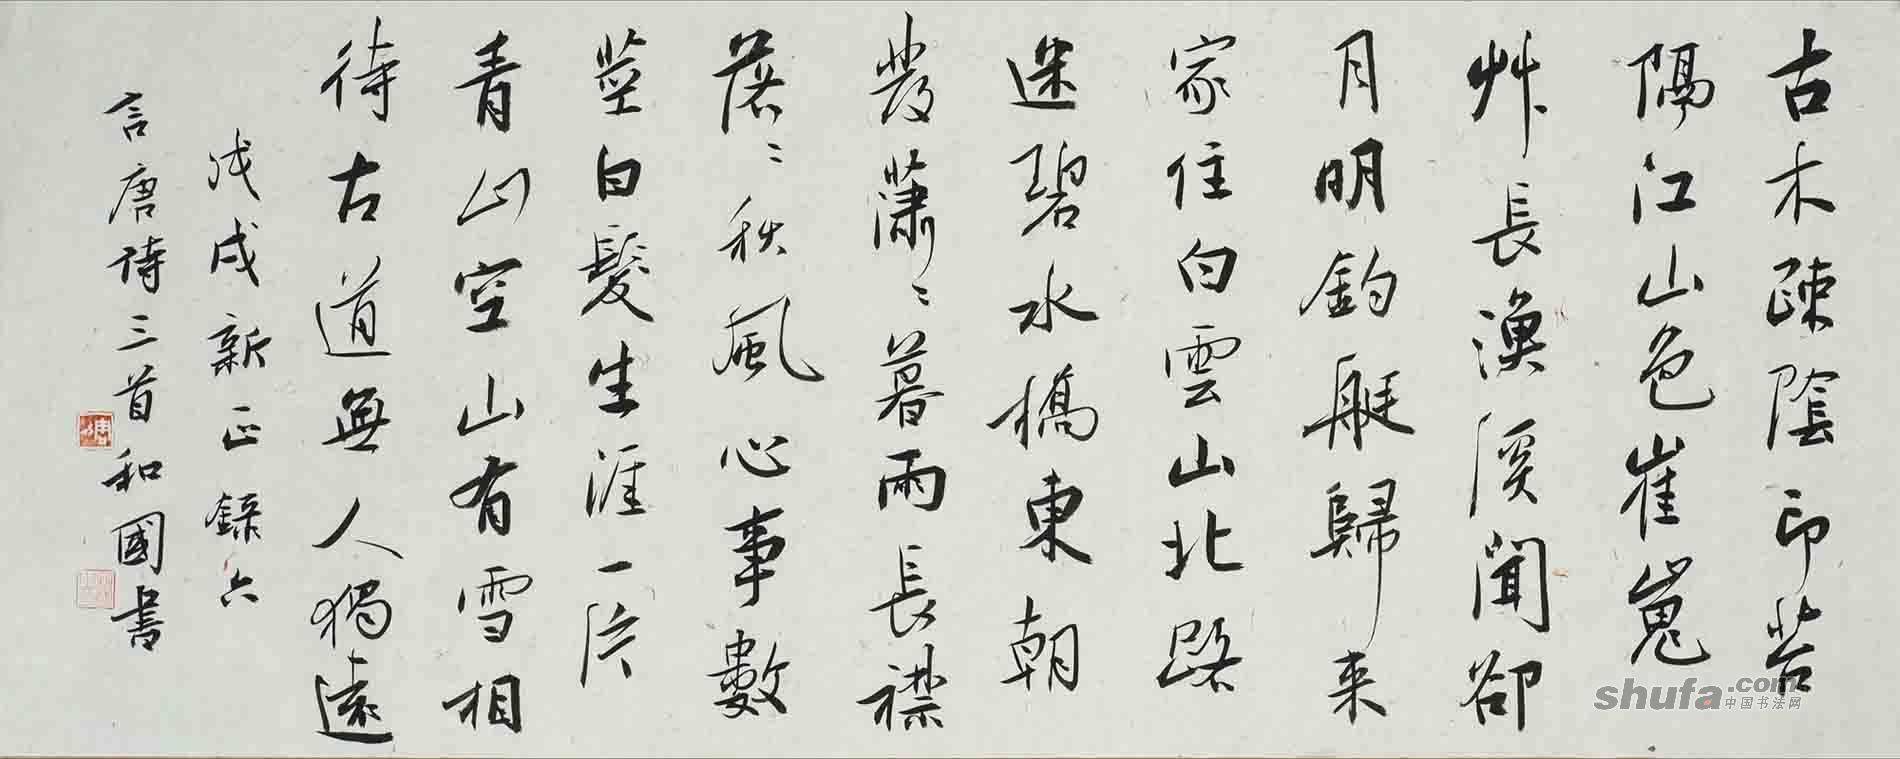 古木疎陰印苔
隔江山色崔嵬
艸長漁溪聞卻
月明釣艇歸来
家住白雲山北路
迷碧水橋東朝
發蕭〻暮雨長襟
落〻秋風心事數
莖白髮生涯一片
青山空山有雪相
待古道無人獨還
戊戌新正錄六
言唐詩三首和國書
shufa.com
中国书法网